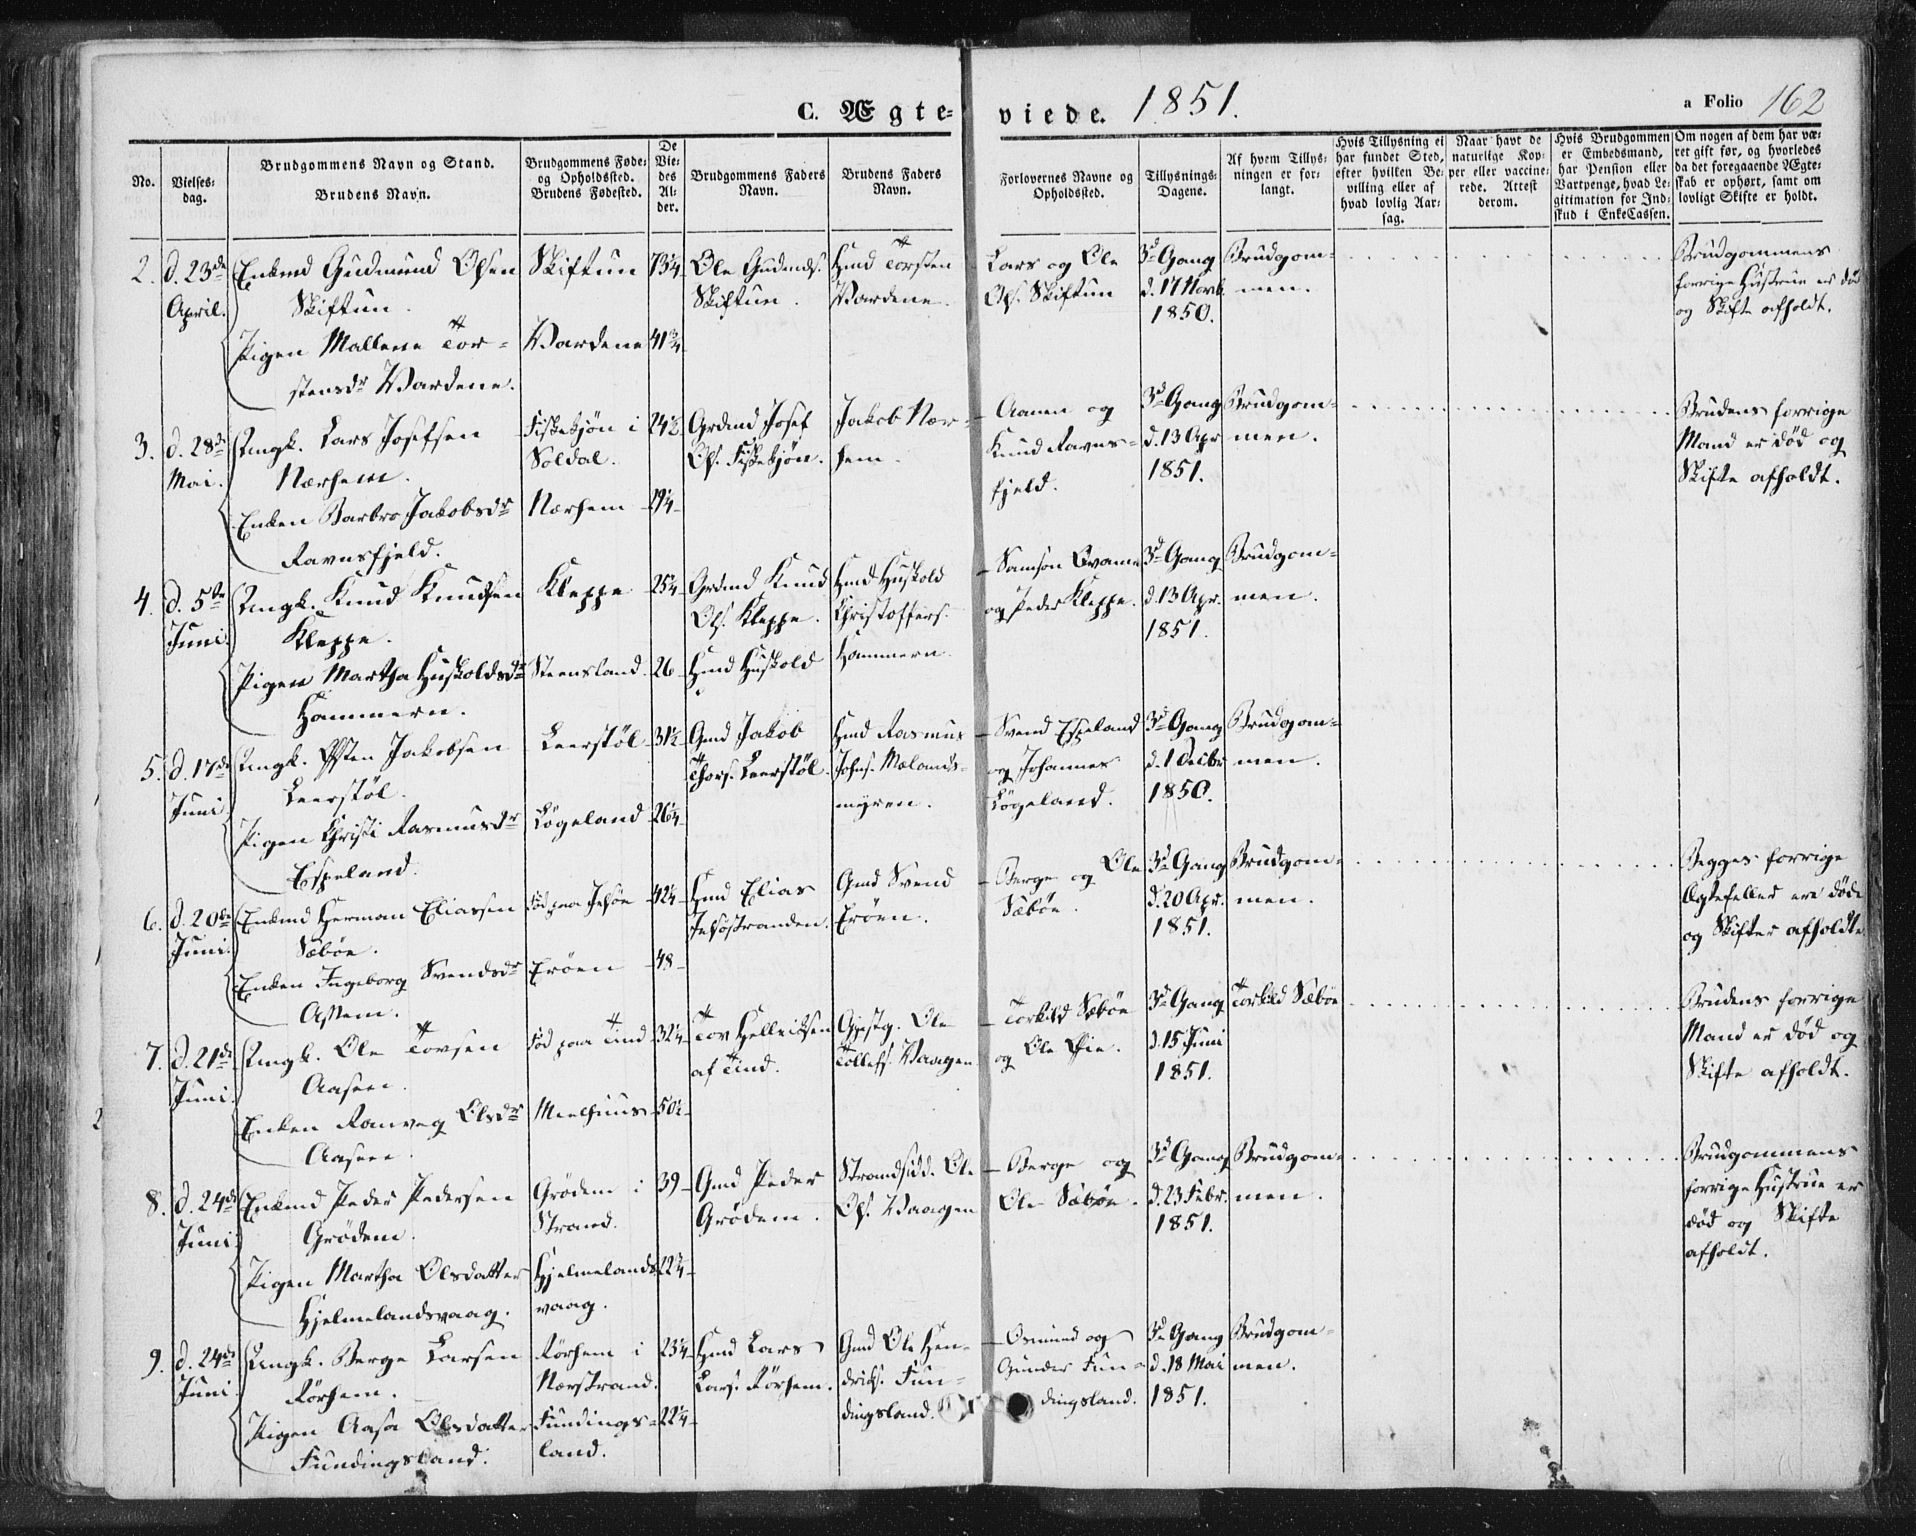 C. Ægte-
viede. 1851.
a Folio 162
No.
Vielses-
dag.
Brudgommens Navn og Stand.
Brudens Navn.
Brudgommens Føde-
og Opholdssted.
Brudens Fødested.
De
Vie-
des
Al-
der.
Brudgommens Faders
Navn.
Brudens Faders
Navn.
Forlovernes Navne og
Opholdssted.
Tillysnings-
Dagene.
Af hvem Tillys-
ningen er for-
langt.
Hvis Tillysning ei
har fundet Sted,
efter hvilken Be-
villing eller af
hvad lovlig Aar-
sag.
Naar havt de
naturlige Kop-
per eller vaccine-
rede. Attest
derom.
Hvis Brudgommen
er Embedsmand,
har Pension eller
Vartpenge, hvad Le-
gitimation for Ind-
skud i EnkeCassen.
Om nogen af dem har væ-
ret gift før, og hvorledes
da det foregaaende Ægte-
skab er ophørt, samt om
lovligt Skifte er holdt.
2.
d. 23de
April.
Enkmd Gudmund Olsen
Skiftun.
Pigen Mallene Tor-
stensdr Vardene.
Skiftun
Vardene
73¼
41¾
Ole Gudmds.
Skiftun.
Hmd Torsten
Vardene.
Lars og Ole
Ols. Skiftun
3d Gang
d. 17 Novb.
1850.
Brudgom-
men.
Brudgommens
forrige Hustrue er død
og Skifte afholdt.
3.
d. 28de
Mai.
Ungk. Lars Josefsen
Nærhem.
Enken Barbro Jakobsdr
Ravnsfjeld.
Fisketjøn i
Soldal.
Nærhem
24½
Grdmd Josef
Ols. Fisketjøn.
Jakob Nær-
hem.
Aanen og
Knud Ravns-
fjeld.
3d Gang
d. 13 Apr
1851.
Brudgom-
men.
Brudens forrige
Mand er død og
Skifte afholdt.
4.
d. 5te
Juni.
Ungk. Knud Knudsen
Kleppe.
Pigen Martha Huskoldsdr
Hammern.
Kleppe
Steensland.
25¼
26
Grdmd Knud
Ols. Kleppe.
Hmd Huskold
Hmd Huskold
Christoffers.
Hammern.
Samson
og Peder Kleppe.
3d Gang
d. 13 Apr.
1851.
Brudgom-
men.
5.
d. 17de
Juni
Ungk. Østen Jakobsen
Leerstøl.
Pigen Christi Rasmusdr
Espeland.
Leerstøl
Løgeland
31½
26¼
Gmd Jakob
Thors. Leerstøl.
Hmd Rasmus
Johns. Mælands-
myren.
Svend Espeland
og Johannes
Løgeland.
3d Gang
d. 1 Decbr
1850.
Brudgom-
men.
6.
d. 20de
Juni.
Enkmd Herman Eliassen
Sæbøe.
Enken Ingeborg Svendsdr
Assem.
Erøen
42¼
48
Hmd Elias
Gmd Svend
Erøen.
Berge og Ole
Sæbøe.
3d Gang
d. 20 Apr.
1851.
Brudgom-
men.
Begges forrige
Ægtefeller ere døde
og Skifter afholdte
7.
d. 21de
Juni.
Ungk. Ole Tovsen
Aasen.
Enken Ranveg Olsdr
Aasen.
Fød paa Tind
Mielhuus
32¼
50½
Tov Hellriksen
af Tind.
Gjestg. Ole
Tollefs. Vaagen
Torkild Sæbøe
og Ole Øie.
3d Gang
d. 15 Juni
1851.
Torkild Sæbøe
Brudens forrige
Mand er død og
Skifte afholdt.
8.
d. 24de
Juni.
Enkmd Peder Pedersen
Grødem.
Pigen Martha Olsdatter
Hjelmelandsvaag.
Grødem i
Strand.
Hjelmelands-
vaag.
39
22¼
Gmd Peder
Grødem.
Strandsidd. Ole
Ols. Vaagen
Berge og
Ole Sæbøe.
3d Gang
d. 23 Febr.
1851.
Brudgom-
men.
Brudgommens
forrige Hustrue er
død og Skifte
afholdt.
9.
d. 24de
Juni
Ungk. Berge Larsen
Rørhem.
Pigen Aasa Olsdatter
Fundingsland.
Rørhem i
Nærstrand.
Fundings-
land.
23¼
22¼
Hmd Lars
Lars. Rørhem.
Gmd Ole Hen-
driks. Fun-
dingsland.
Osmund og
Gunder Fun-
dingsland.
3d Gang
d. 18 Mai
1851.
Brudgom-
men.